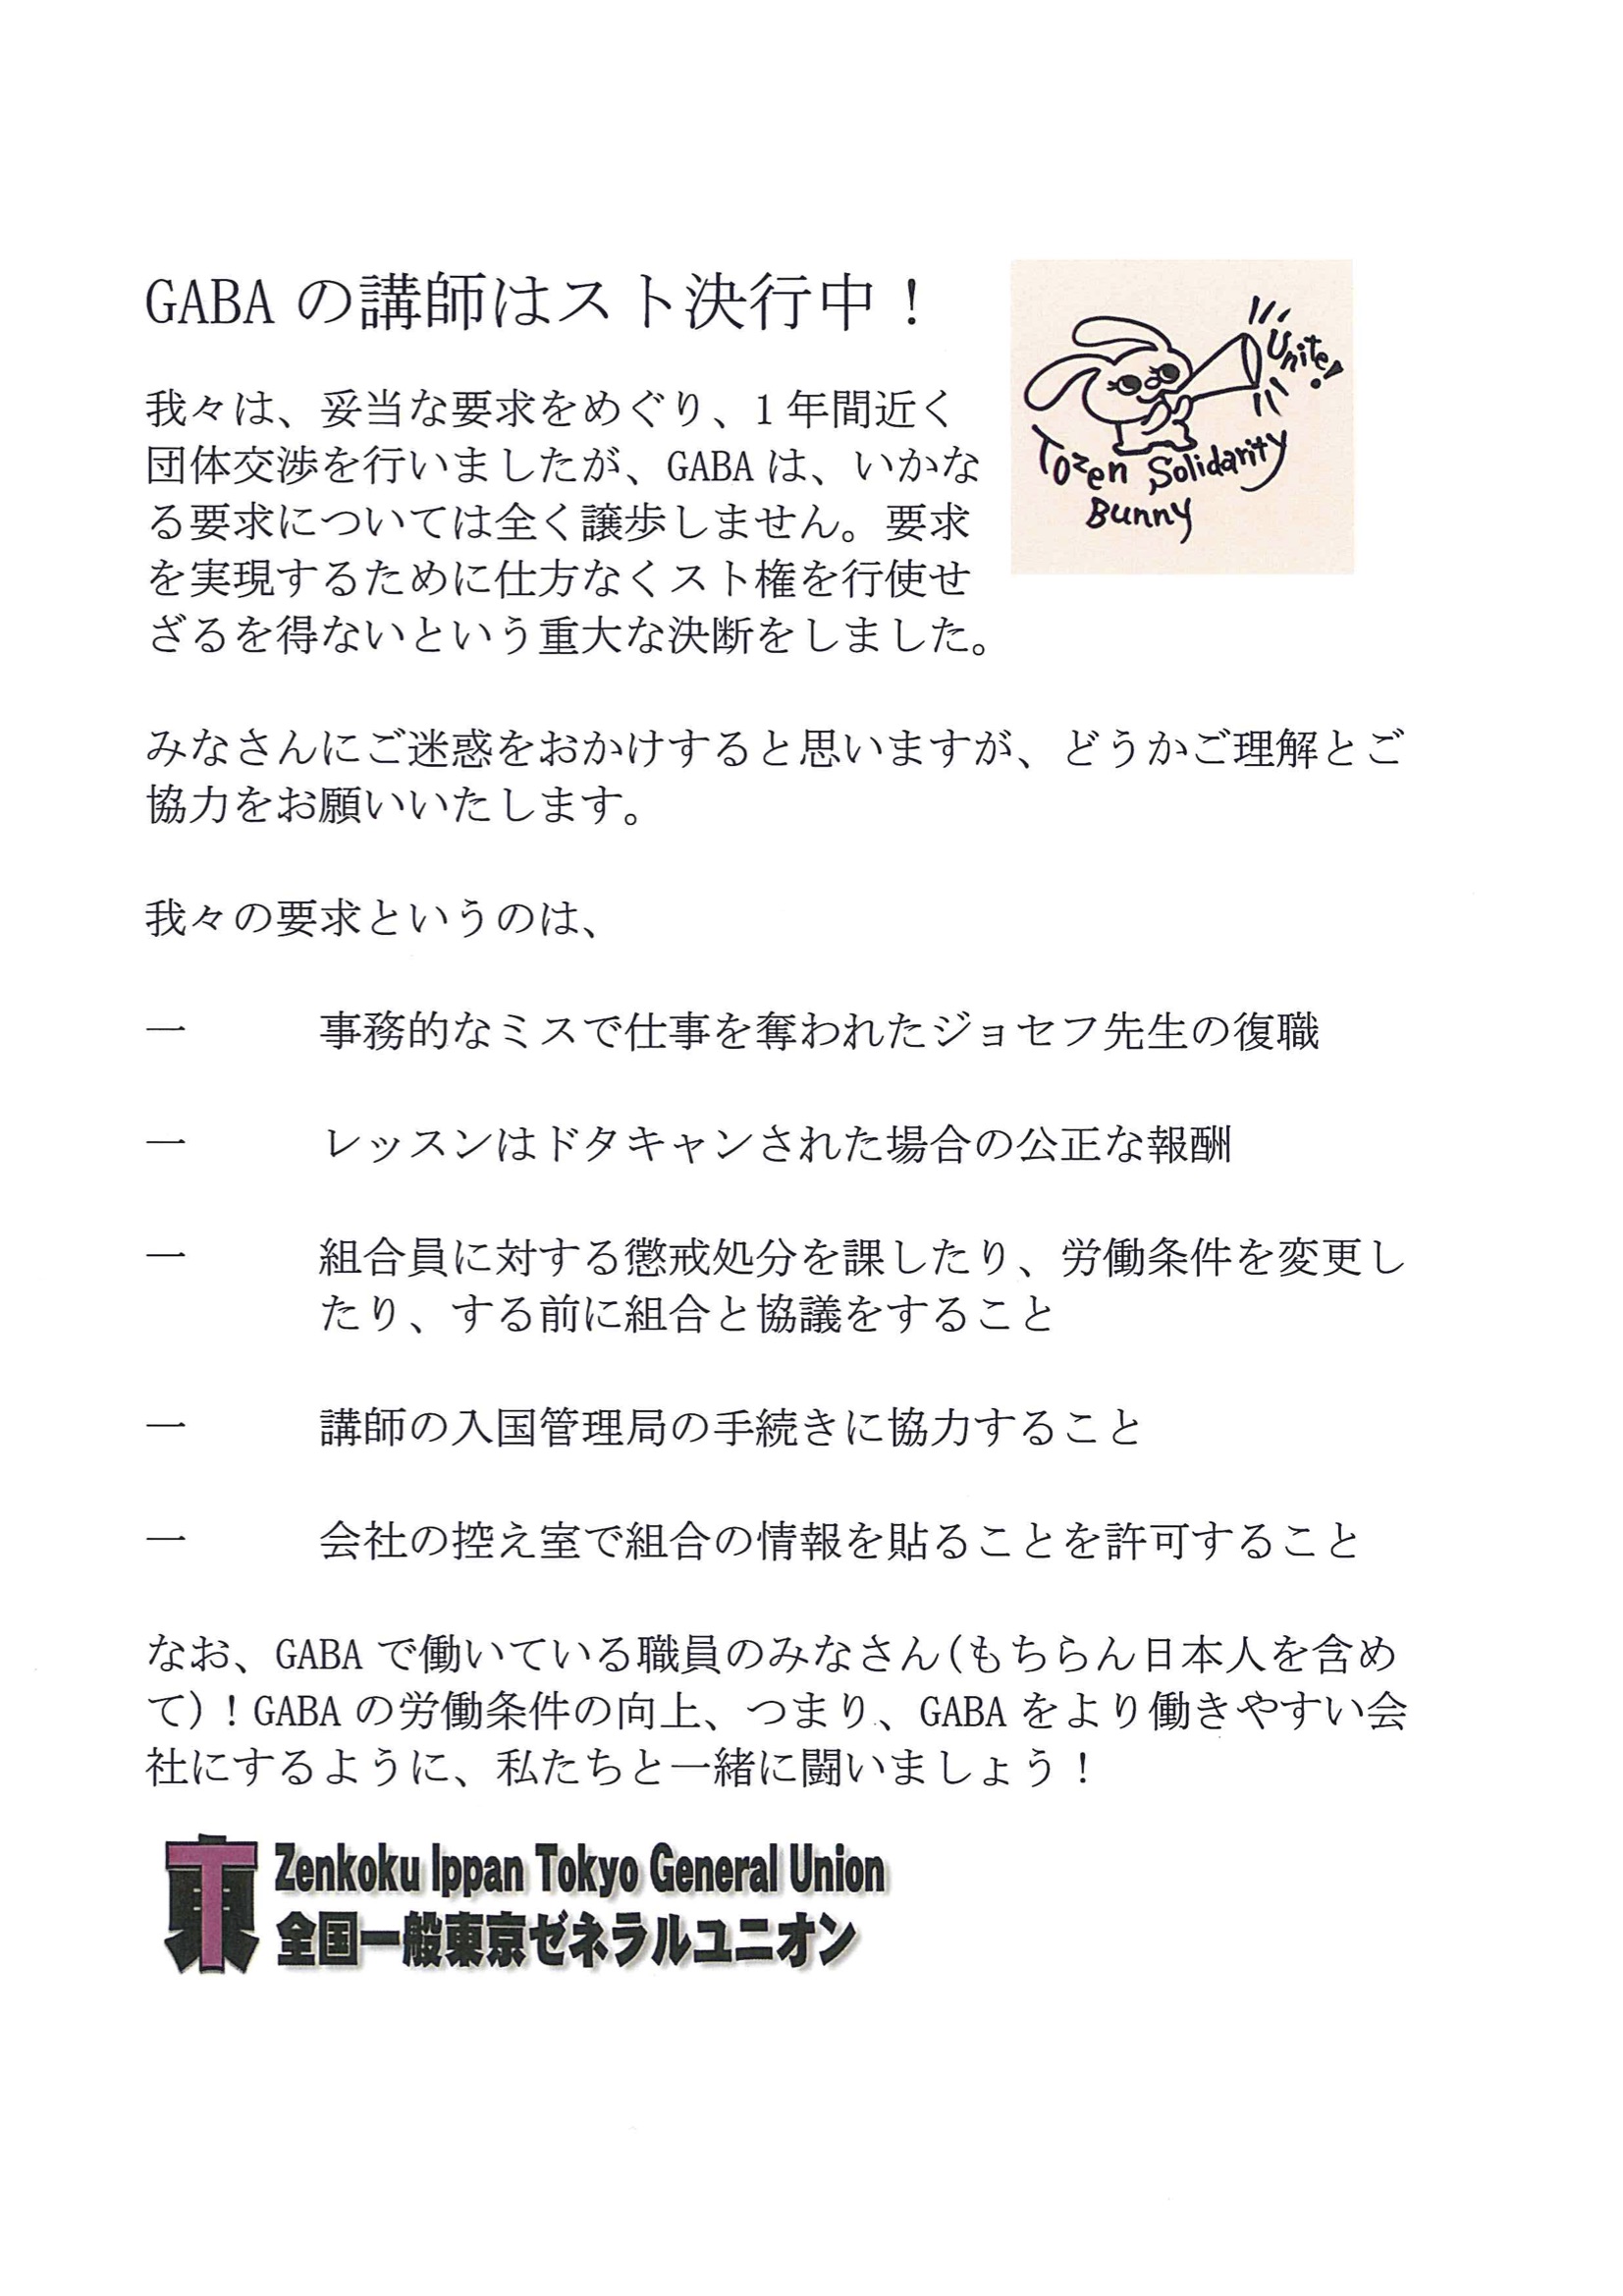 GABA の講師はスト決行中！
Unite!
Tozen Solidarity
Bunny
我々は、妥当な要求をめぐり、1 年間近く
団体交渉を行いましたが、GABA は、いかな
る要求については全く譲歩しません。要求
を実現するために仕方なくスト権を行使せ
ざるを得ないという重大な決断をしました。
みなさんにご迷惑をおかけすると思いますが、どうかご理解とご
協力をお願いいたします。
我々の要求というのは、
― 事務的なミスで仕事を奪われたジョセフ先生の復職
― レッスンはドタキャンされた場合の公正な報酬
― 組合員に対する懲戒処分を課したり、労働条件を変更し
たり、する前に組合と協議をすること
― 講師の入国管理局の手続きに協力すること
― 会社の控え室で組合の情報を貼ることを許可すること
なお、GABA で働いている職員のみなさん(もちらん日本人を含め
て)！GABA の労働条件の向上、つまり、GABA をより働きやすい会
社にするように、私たちと一緒に闘いましょう！
東
Zenkoku Ippan Tokyo General Union
全国一般東京ゼネラルユニオン